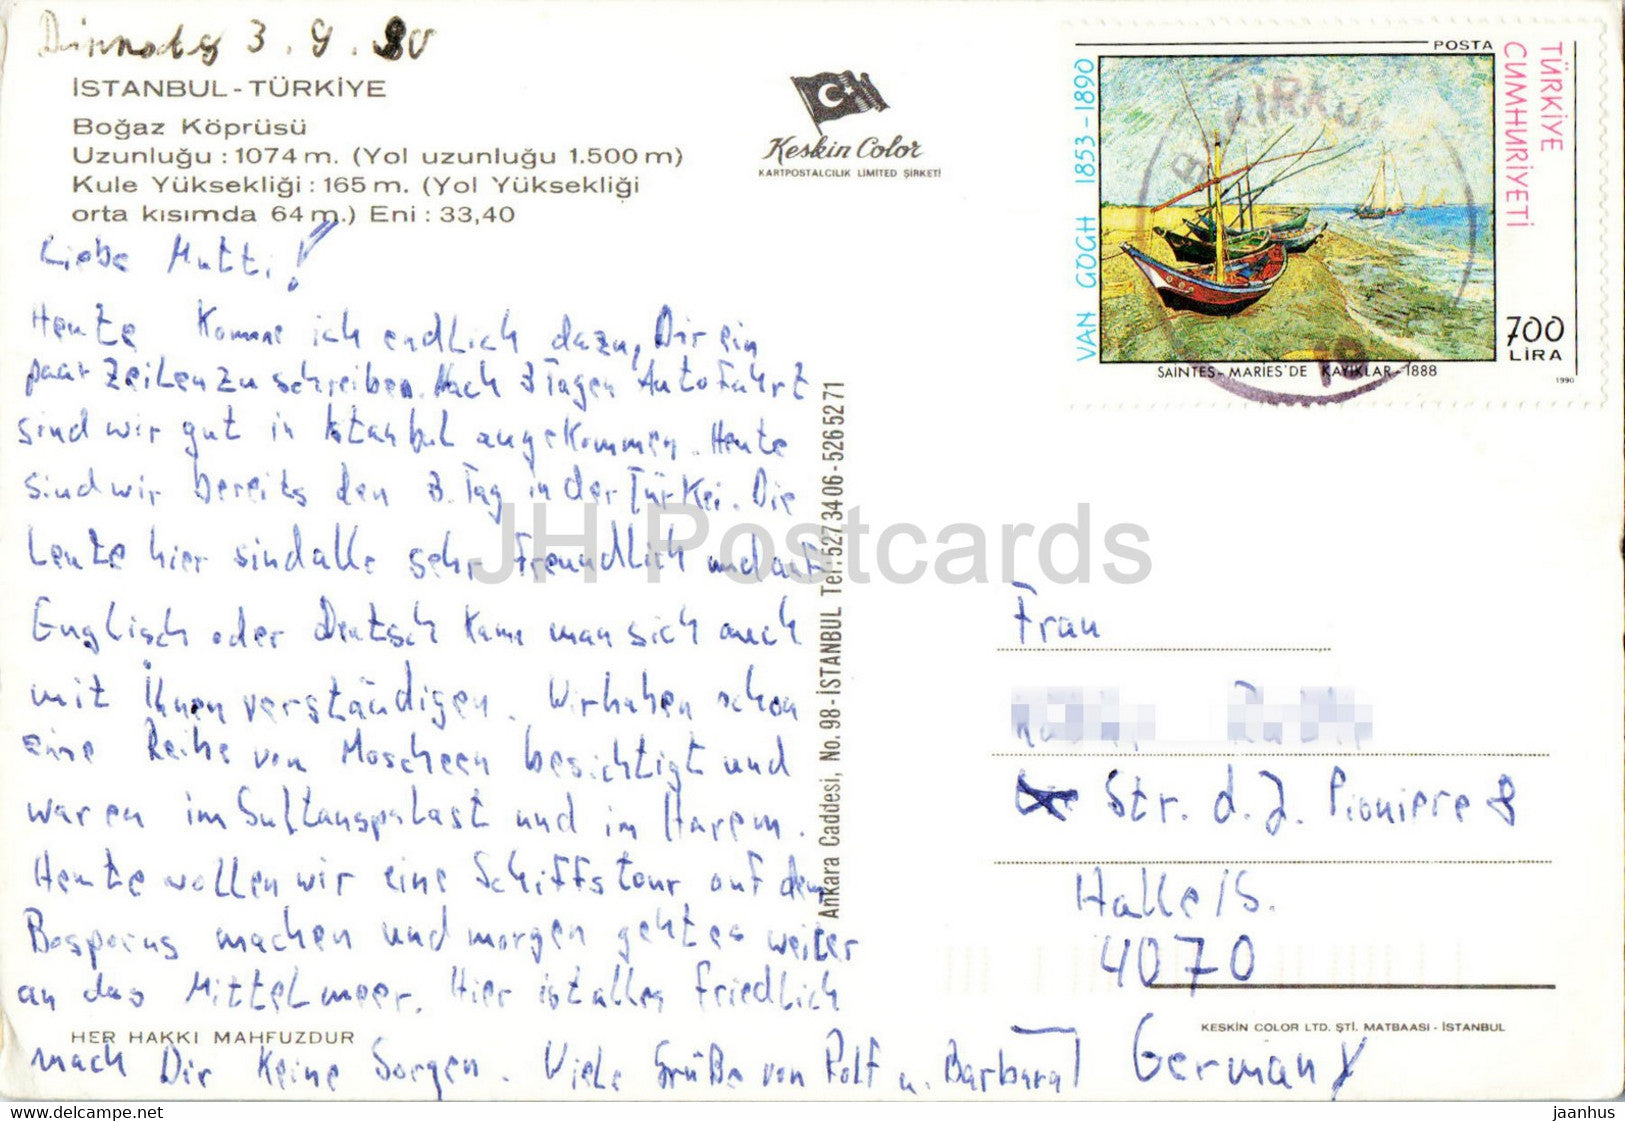 Dienstag 3.9.90
İSTANBUL - TÜRKİYE
Boğaz Köprüsü
Uzunluğu : 1074 m. (Yol uzunluğu 1.500 m)
Kule Yüksekliği : 165 m. (Yol Yüksekliği
orta kısımda 64 m.) Eni : 33,40
Keskin Color
KARTPOSTALCILIK LIMITED ŞİRKETİ
POSTA
TÜRKİYE CUMHURİYETİ
VAN GOGH 1853-1890
700
LİRA
SAINTES-MARIES'DE KAYIKLAR-1888
1990
Liebe Mutti!
Heute komme ich endlich dazu, Dir ein
paar Zeilen zu schreiben. Nach 3 Tagen Autofahrt
sind wir gut in Istanbul angekommen. Heute
sind wir bereits den 3. Tag in der Türkei. Die
Leute hier sind alle sehr freundlich und auf
Englisch oder Deutsch kann man sich auch
mit Ihnen verständigen. Wir haben schon
eine Reihe von Moscheen besichtigt und
waren im Sultanspalast und im Harem.
Heute wollen wir eine Schiffstour auf dem
Bosporus machen und morgen geht es weiter
an das Mittelmeer. Hier ist alles friedlich
mach Dir keine Sorgen. Viele Grüße von Rolf u. Barbara
HER HAKKI MAHFUZDUR
Ankara Caddesi, No. 98 - İSTANBUL Tel: 527 34 06 - 526 52 71
JH Postcards
Frau
Str. d. J. Pioniere 8
Halle/S.
4070
KESKIN COLOR LTD. ŞTİ. MATBAASI - İSTANBUL
Germany
www.delcampe.net
jaanhus